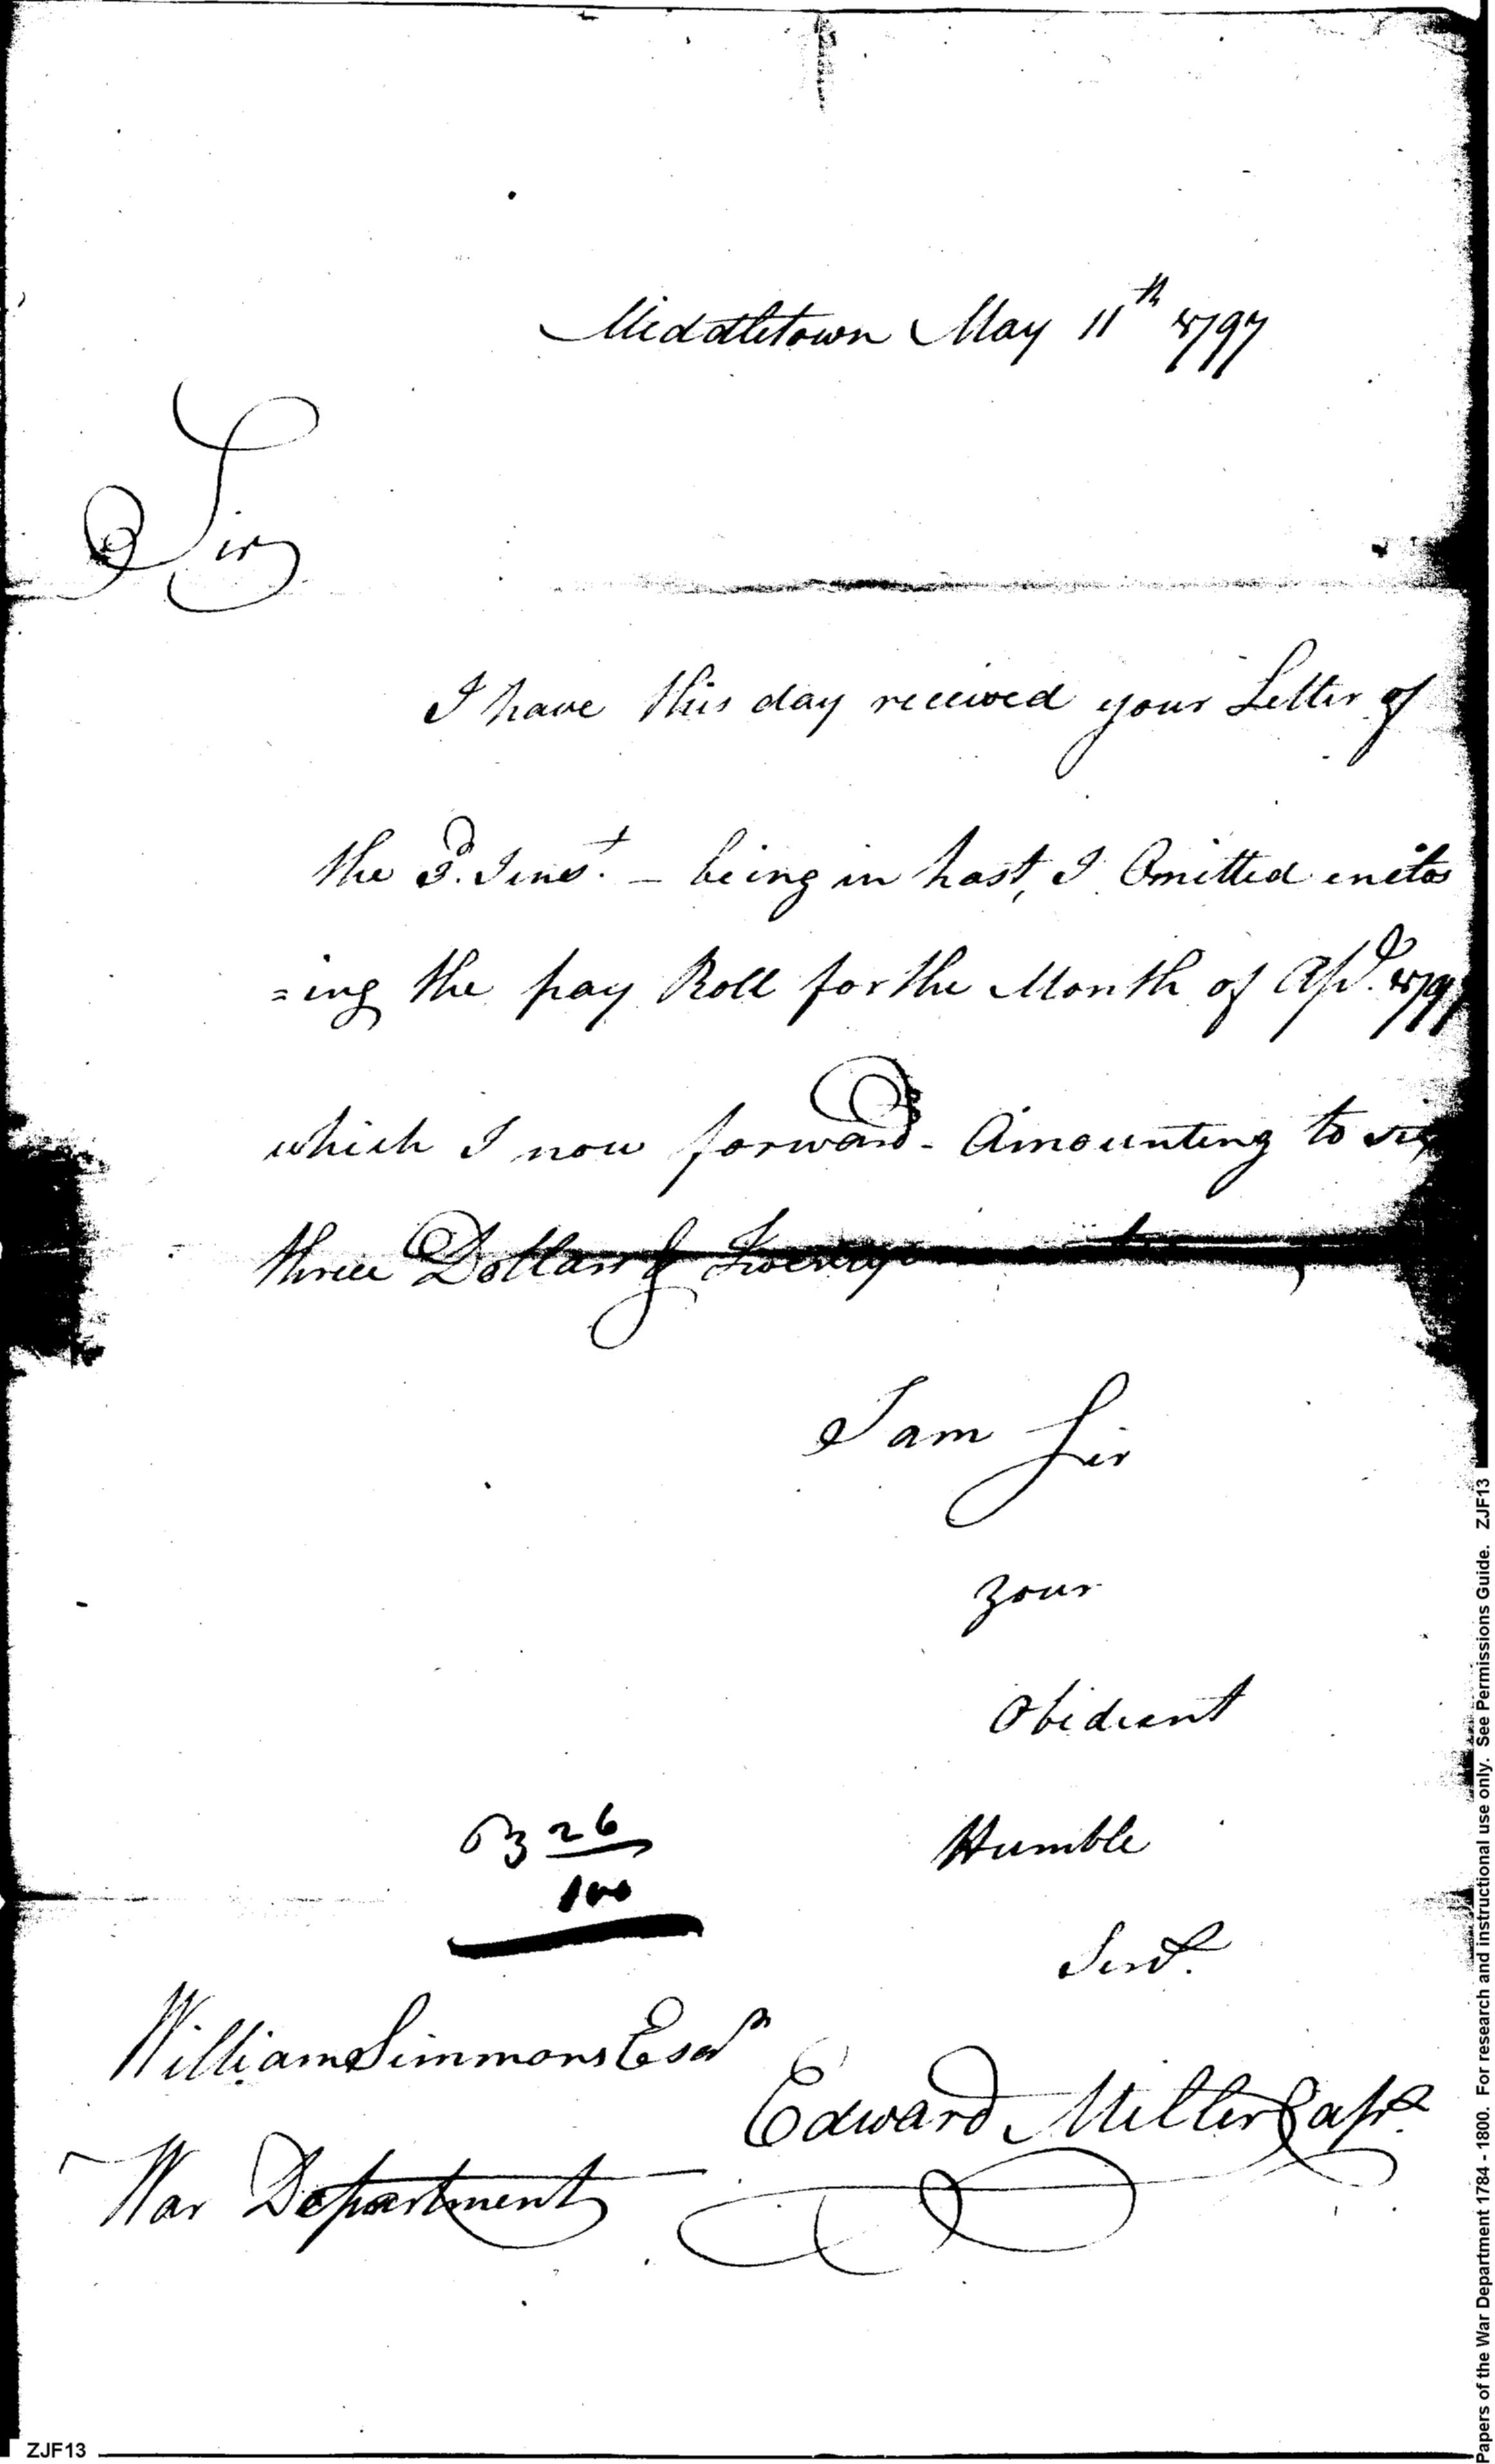 Middletown May 11th 1797
Sir
I have this day received your Letter of
the 3d. Inst. – being in hast, I Omitted enclos
=ing the pay Roll for the Month of Apl. 1797
which I now forward – Amounting to six
three Dollars & Twenty
I am Sir
your
Obidient
Humble
Servt.
63 26/100
William Simmons Esqr
Edward Miller Capt.
War Department
ZJF13
Papers of the War Department 1784 - 1800. For research and instructional use only. See Permissions Guide. ZJF13